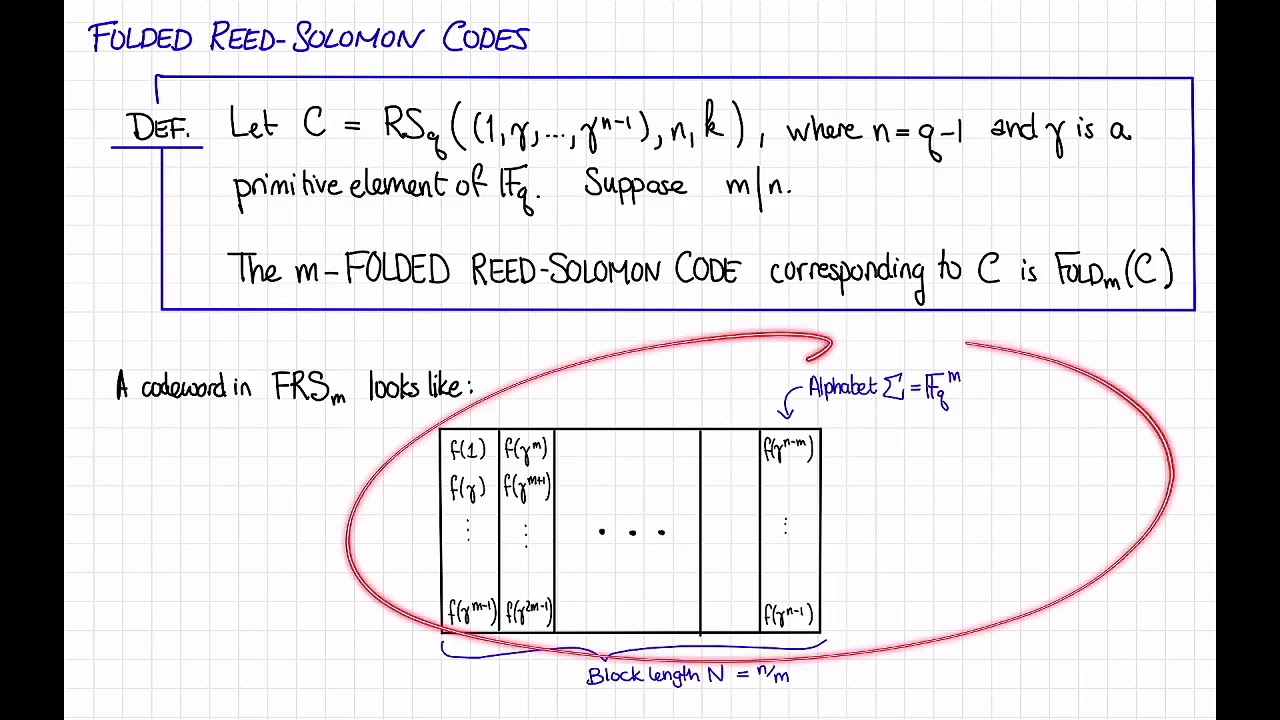 FOLDED REED-SOLOMON CODES
DEF. Let C = RS_q((1, γ, ..., γ^{n-1}), n, k), where n = q-1 and γ is a
primitive element of 𝔽_q. Suppose m|n.
The m-FOLDED REED-SOLOMON CODE corresponding to C is FOLD_m(C)
A codeword in FRS_m looks like:
Alphabet Σ = 𝔽_q^m
f(1) f(γ^m) f(γ^{n-m})
f(γ) f(γ^{m+1})
⋮ ⋮ . . . ⋮
f(γ^{m-1}) f(γ^{2m-1}) f(γ^{n-1})
Block length N = n/m